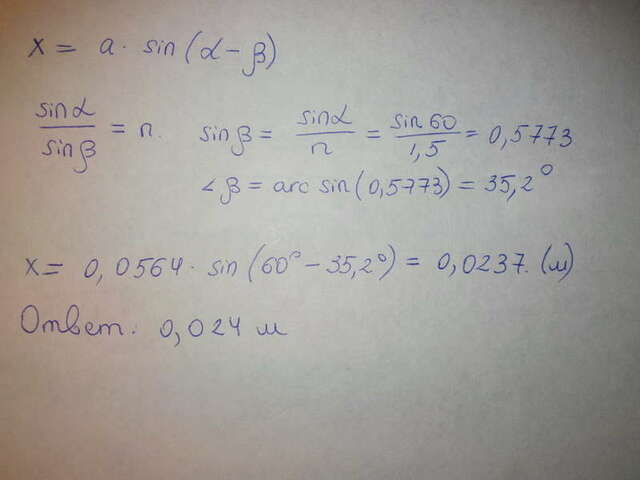 x = a · sin(α - β)
sinα / sinβ = n. sinβ = sinα / n = sin60 / 1,5 = 0,5773
∠β = arc sin(0,5773) = 35,2°
x = 0,0564 · sin(60° - 35,2°) = 0,0237. (м)
Ответ. 0,024 м